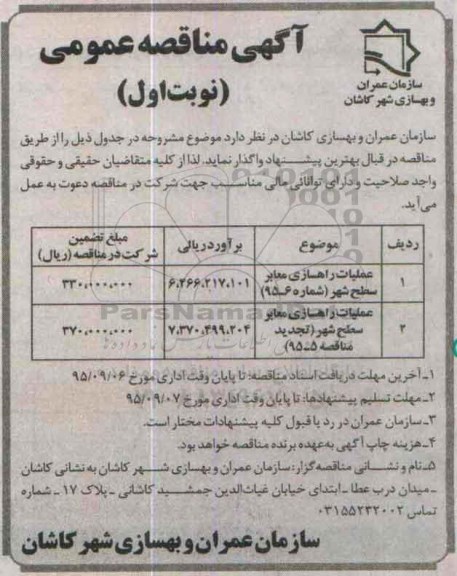 آگهی مناقصه عمومی
(نوبت اول)
سازمان عمران
و بهسازی شهر کاشان
سازمان عمران و بهسازی کاشان در نظر دارد موضوع مشروحه در جدول ذیل را از طریق
مناقصه در قبال بهترین پیشنهاد واگذار نماید. لذا از کلیه متقاضیان حقیقی و حقوقی
واجد صلاحیت و دارای توانائی مالی مناسب جهت شرکت در مناقصه دعوت به عمل
می‌آید.
ردیف موضوع برآورد ریالی مبلغ تضمین
شرکت در مناقصه (ریال)
۱ عملیات راهسازی معابر
سطح شهر (شماره ۶ـ۹۵) ۶،۴۶۶،۲۱۷،۱۰۱ ۳۳۰،۰۰۰،۰۰۰
۲ عملیات راهسازی معابر
سطح شهر (تجدید
مناقصه ۵ـ۹۵) ۷،۳۷۰،۴۹۹،۲۰۴ ۳۷۰،۰۰۰،۰۰۰
ParsNamadData
۱ـ آخرین مهلت دریافت اسناد مناقصه: تا پایان وقت اداری مورخ ۹۵/۰۹/۰۶
۲ـ مهلت تسلیم پیشنهادها: تا پایان وقت اداری مورخ ۹۵/۰۹/۰۷
۳ـ سازمان عمران در رد یا قبول کلیه پیشنهادات مختار است.
۴ـ هزینه چاپ آگهی به‌عهده برنده مناقصه خواهد بود.
۵ـ نام و نشانی مناقصه گزار: سازمان عمران و بهسازی شهر کاشان به نشانی کاشان
ـ میدان درب عطا ـ ابتدای خیابان غیاث‌الدین جمشید کاشانی ـ پلاک ۱۷ ـ شماره
تماس ۰۳۱۵۵۲۳۲۰۰۲
سازمان عمران و بهسازی شهر کاشان